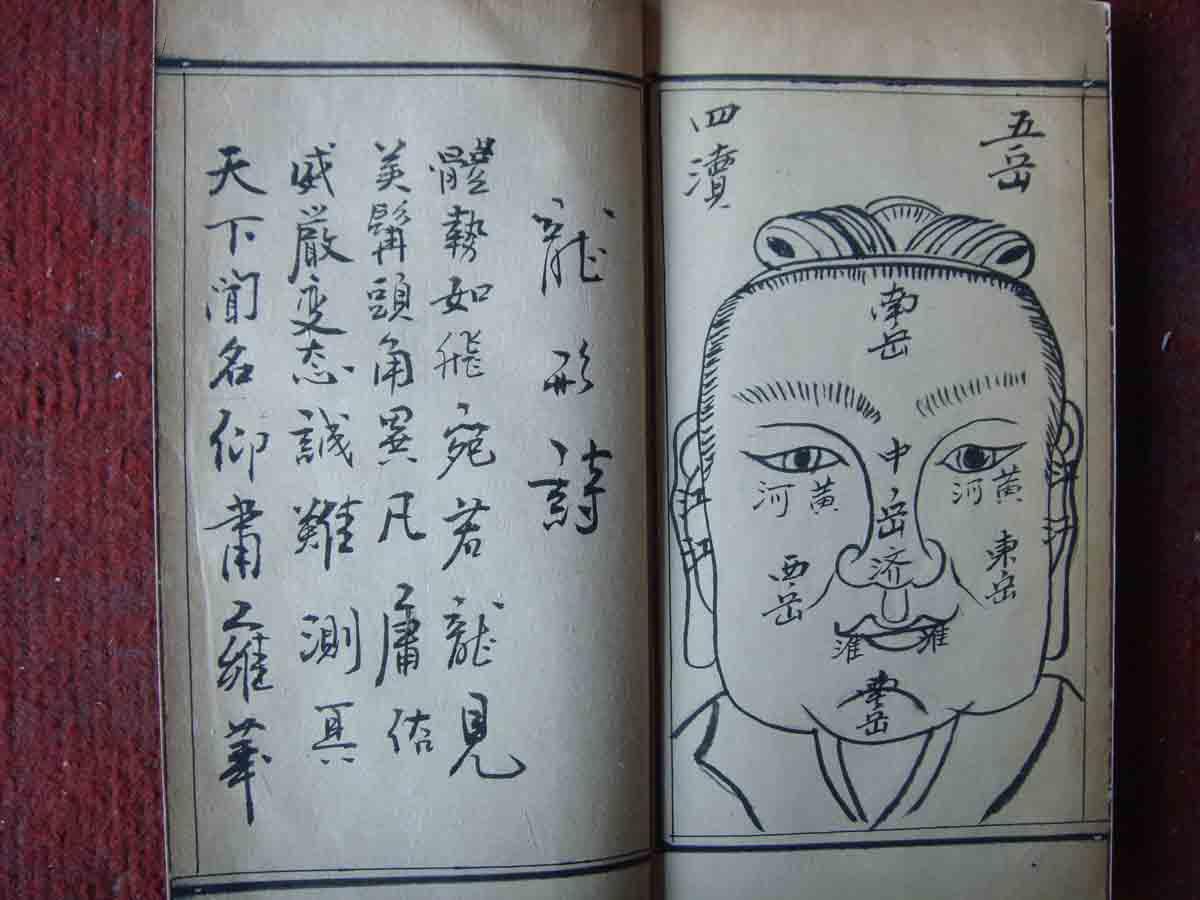 五岳
四瀆
南岳
中岳
黄河
黄河
江江
江江
東岳
西岳
济
淮
淮
岳
龍形詩
體勢如飛宛若龍見
美髯頭角異凡庸
威嚴变态誠難測
天下聞名仰肅